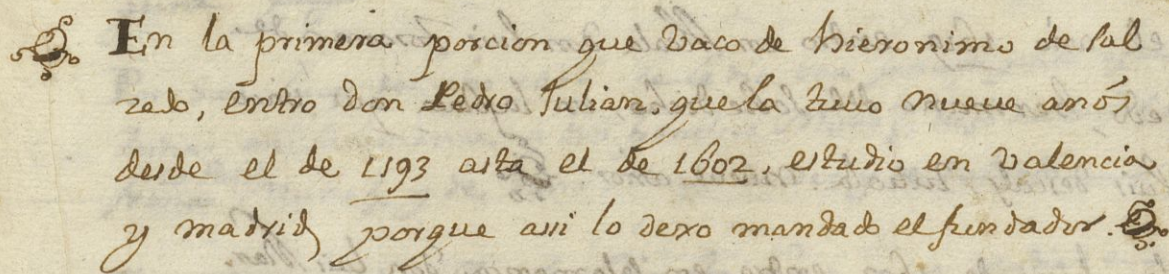 En la primera porcion que vaco de hieronimo de sal
zedo, entro don Pedro Julian, que la tuvo nueve anós
desde el de 1193 asta el de 1602, estudio en valencia
y madrid porque assi lo dexo mandado el fundador.